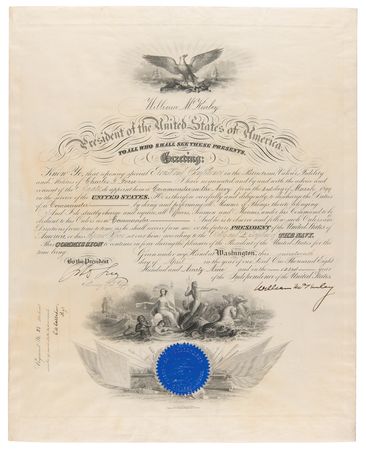 William McKinley
President of the United States of America.
TO ALL WHO SHALL SEE THESE PRESENTS,
Greeting:
Know Ye, that reposing special Trust and Confidence in the Patriotism, Valor, Fidelity
and Abilities of Charles I have nominated and by and with the advice and
consent of the Senate do appoint him a Commander in the Navy from the 3rd day of March 1899
in the service of the UNITED STATES. He is therefore carefully and diligently to discharge the duties
of a Commander by doing and performing all Manner of things thereto belonging.
And I do strictly charge and require all Officers, Seamen and Marines under his Command to be
obedient to his Orders as Commander And he is to observe and follow such Orders and
Directions from time to time as he shall receive from me or the future PRESIDENT of the United States of
America, or his Superior Officer set over him, according to the Rules and Discipline of THE NAVY.
This COMMISSION to continue in force during the pleasure of the President of the United States for the
time being.
Given under my Hand at Washington, this
day of in the year of our Lord One Thousand Eight
Hundred and Ninety Nine and in the year
of the Independence of the United States.
By the President
William McKinley
Registered No.